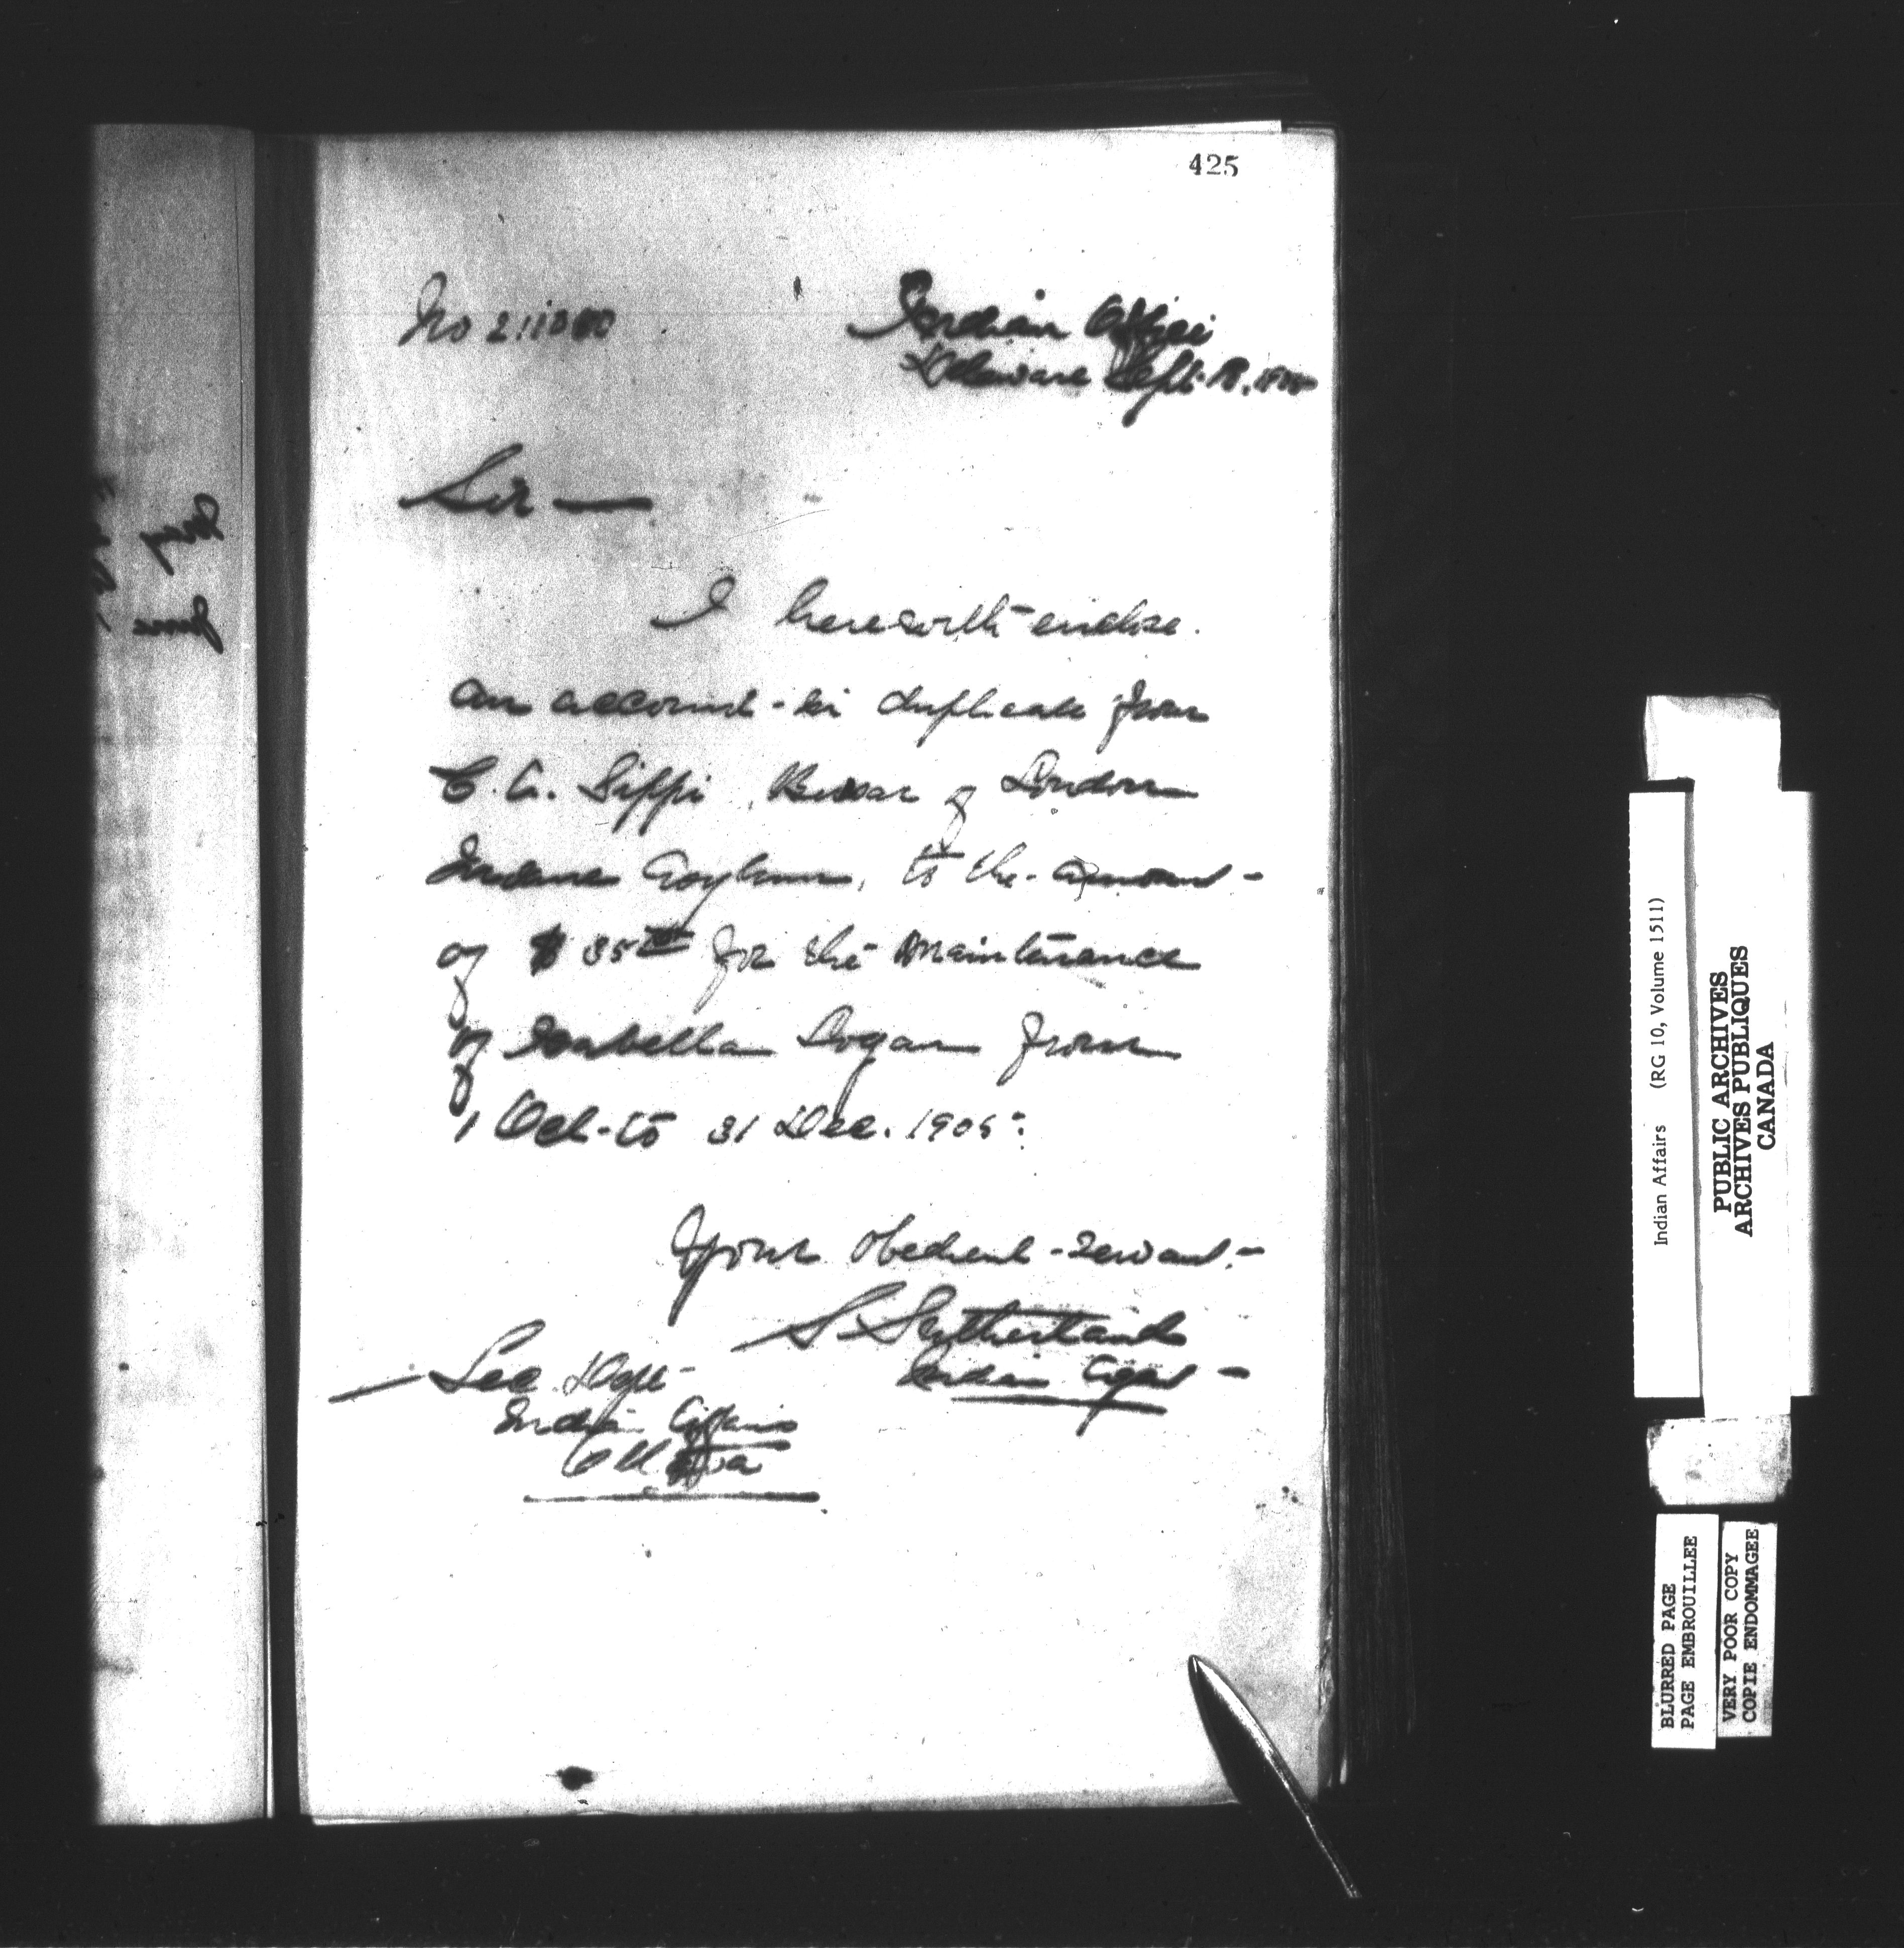 425
No
Indian Office
Delaware Sept. 18, 1905
Sir —
I herewith enclose
an account in duplicate from
C. A. Sippi, Bursar of London
Insane Asylum, to the amount
of $ 35 00 for the Maintenance
of Isabella Logan from
1 Oct. to 31 Dec. 1905.
Your obedient servant
S. Sutherland
Indian Agent
Sec. Dept
Indian Affairs
Ottawa
May
June
Indian Affairs (RG 10, Volume 1511)
PUBLIC ARCHIVES
ARCHIVES PUBLIQUES
CANADA
BLURRED PAGE
PAGE EMBROUILLEE
VERY POOR COPY
COPIE ENDOMMAGEE